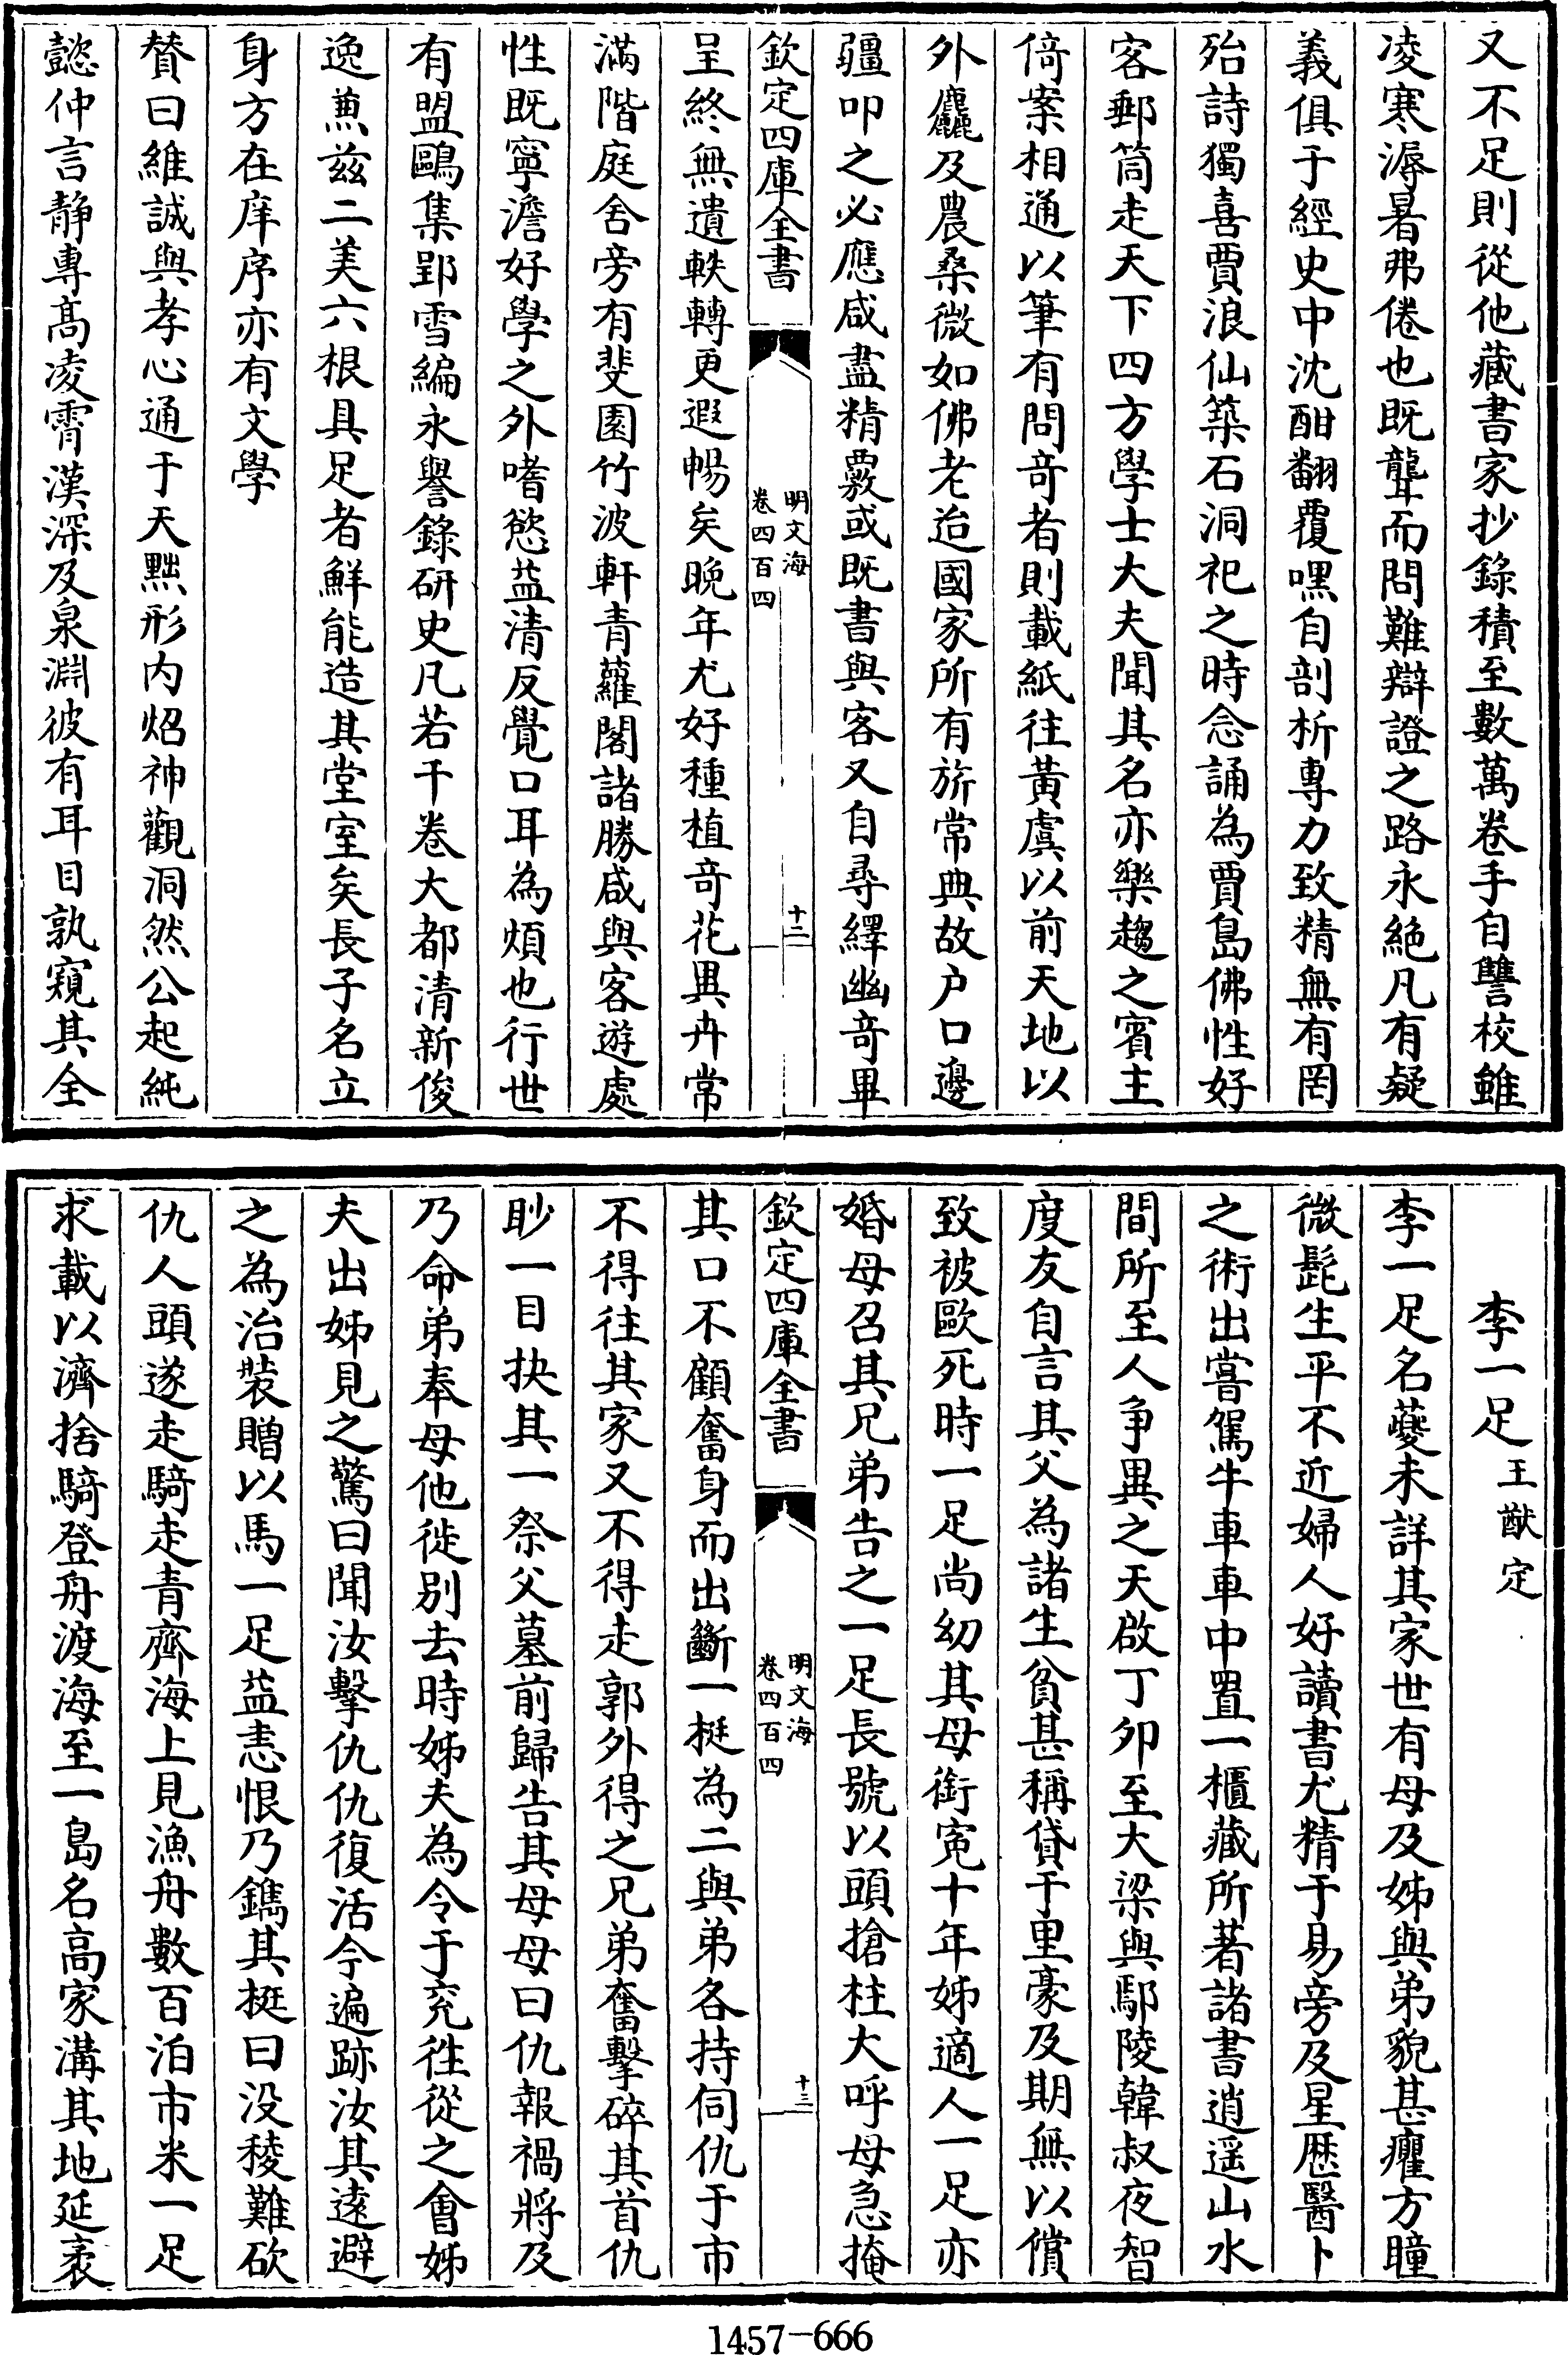 又不足則從他藏書家抄錄積至數萬卷手自讐校雖
凌寒溽暑弗倦也既聾而問難辯證之路永絕凡有疑
義俱于經史中沈酣翻覆嘿自剖析專力致精無有罔
殆詩獨喜賈浪仙築石洞祀之時念誦為賈島佛性好
客郵筒走天下四方學士大夫聞其名亦樂趨之賓主
倚案相通以筆有問竒者則載紙往黃虞以前天地以
外麤及農桑微如佛老迨國家所有旂常典故户口邊
疆叩之必應咸盡精覈或既書與客又自尋繹幽竒畢
欽定四庫全書
明文海
卷四百四
十二
呈終無遺軼轉更遐暢矣晚年尤好種植竒花異卉常
滿階庭舍旁有斐園竹波軒青蘿閣諸勝咸與客遊處
性既寧澹好學之外嗜慾益清反覺口耳為煩也行世
有盟鷗集郢雪編永譽錄研史凡若干卷大都清新俊
逸兼兹二美六根具足者鮮能造其堂室矣長子名立
身方在庠序亦有文學
賛曰維誠與孝心通于天黜形内炤神觀洞然公起純
懿仲言静專高凌霄漢深及泉淵彼有耳目孰窺其全
李一足 王猷定
李一足名夔未詳其家世有母及姊與弟貌甚癯方瞳
微髭生平不近婦人好讀書尤精于易旁及星厯醫卜
之術出嘗駕牛車車中置一櫃藏所著諸書逍遥山水
間所至人争異之天啟丁夘至大梁與鄢陵韓叔夜智
度友自言其父為諸生貧甚稱貸于里豪及期無以償
致被歐死時一足尚幼其母銜寃十年姊適人一足亦
婚母召其兄弟告之一足長號以頭搶柱大呼母急掩
欽定四庫全書
明文海
卷四百四
十三
其口不顧奮身而出斷一梃為二與弟各持伺仇于市
不得徃其家又不得走郭外得之兄弟奮擊碎其首仇
眇一目抉其一祭父墓前歸告其母母曰仇報禍將及
乃命弟奉母他徙别去時姊夫為令于兖徃從之會姊
夫出姊見之驚曰聞汝擊仇仇復活今遍跡汝其逺避
之為治裝贈以馬一足益恚恨乃鐫其梃曰没稜難砍
仇人頭遂走騎走青齊海上見漁舟數百泊市米一足
求載以濟捨騎登舟渡海至一島名高家溝其地延袤
1457-666